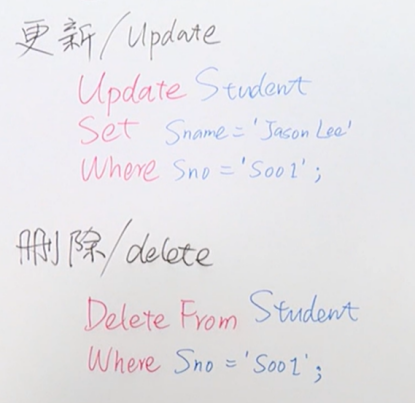 更新/Update
Update Student
Set Sname='Jason Lee'
Where Sno='S001';
删除/delete
Delete From Student
Where Sno='S001';